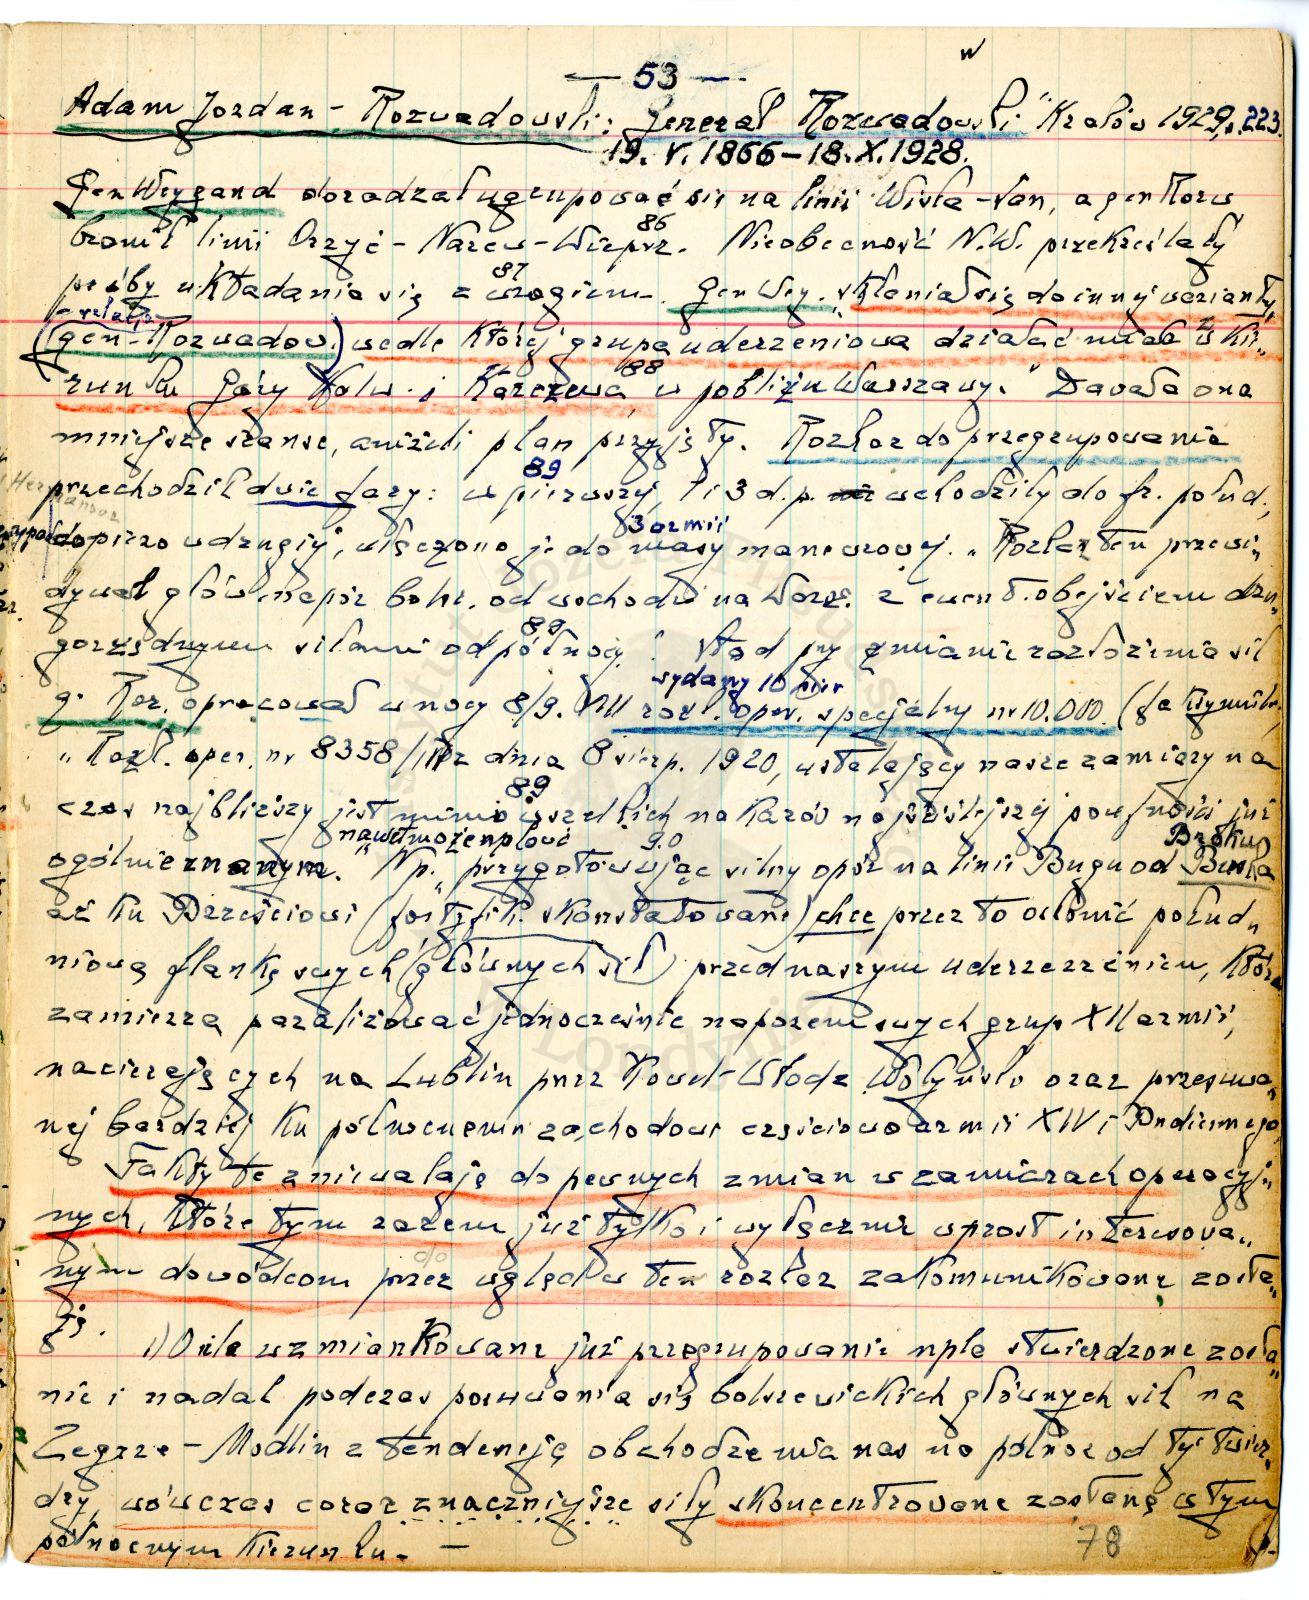 — 53 —
w
Adam Jordan - Rozwadowski: "Generał Rozwadowski" Kraków 1929, s. 223.
19. V. 1866 – 18. X. 1928.
Gen Weygand doradzał ugrupować się na linii Wisła – San, a gen Rozw
bronił linii Orzyć – Narew – Wieprz. 86 Nieobecność N.W. przekreślały
próby układania się z wrogiem. 87 Gen Wey. "skłaniał się do innej warianty,
- relacja
(gen - Rozwadow.) wedle której grupa uderzeniowa działać miała w kie„
runku Góry Kalw. i Karczewa 88 w pobliżu Warszawy." Dawała ona
mniejsze szanse, aniżeli plan przyjęty. Rozkaz do przegrupowania
przechodził dwie fazy: 89 w pierwszej, 1 i 3 d.p. wchodziły do fr. połud.,
dopiero w drugiej, włączono je do 3 armii masy manewrowej. „Rozkaz ten przewi„
dywał główn. napór bolsz. od wschodu na Warsz. z ewent. obejściem dru„
gorzędnym siłami od północy. 89 Stąd przy zmianie rozłożenia sił
wydany 10 sier
g. Roz. opracował w nocy 8/9. VIII rozk. oper. specjalny nr 10.000.
„Rozk. oper. nr 8358/III z dnia 8 sierp. 1920, ustalający nasze zamiary na
czas najbliższy jest mimo wszelkich nakazów najściślejszej poufności już 89
ogólnie znanym. nawet może nplowi 90 Np. „przygotowując silny opór na linii Bugu od Broku Buska
aż ku Brześciowi (fortyfik. skonstatowane) chce przez to osłonić połud„
niową flankę swych (głównych sił) przed naszym uderzeniem, które
zamierza paraliżować jednocześnie naporem swych grup XII armii,
nacierających na Lublin przez Kowel – Włodz. Wołyńsko oraz przesuwa„
nej bardziej ku północnemu zachodowi częściowo armii XIV i Budiennego.
Fakty te zniewalają do pewnych zmian w zamiarach operacyj„
nych, które tym razem już tylko i wyłącznie wprost interesowa„
nym dowódcom przez wgląd w ten rozkaz zakomunikowane zosta„
ją.
1) O ile wzmiankowane już przegrupowanie npla stwierdzone zosta„
nie i nadal podczas posuwania się bolszewickich głównych sił na
Zegrze – Modlin z tendencją obchodzenia nas na północ od tej twier„
dzy, wówczas coraz znaczniejsze siły skoncentrowane zostaną w tym
północnym kierunku. —
78